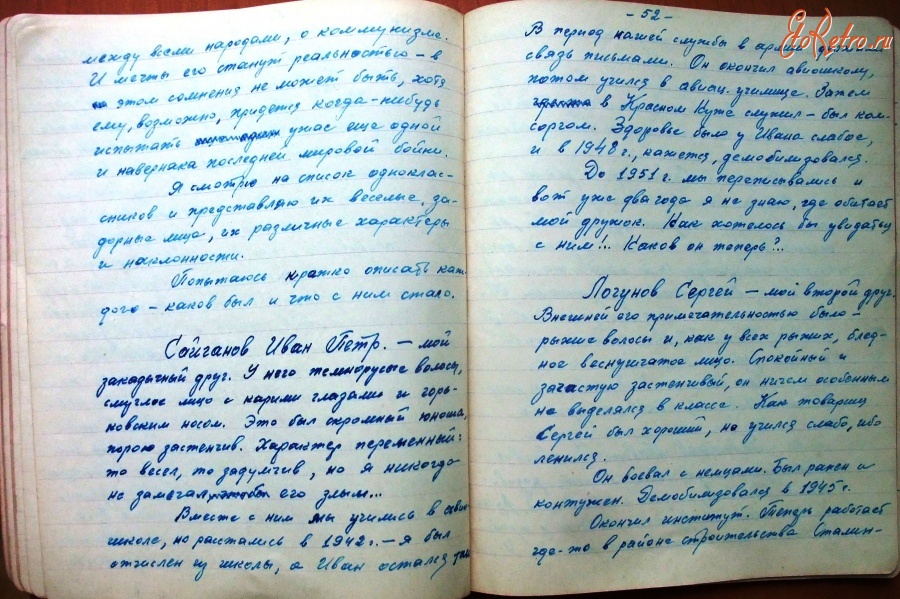 между всеми народами, о коммунизме.
И мечты его станут реальностью – в
этом сомнения не может быть, хотя
ему, возможно, придется когда-нибудь
испытать ужас еще одной
и наверняка последней мировой бойни.
Я смотрю на список однокласс-
ников и представляю их веселые, за-
дорные лица, их различные характеры
и наклонности.
Попытаюсь кратко описать каж-
дого – каков был и что с ним стало.
Сайганов Иван Петр. – мой
закадычный друг. У него темнорусые волосы,
смуглое лицо с карими глазами и горь-
ковским носом. Это был скромный юноша,
порою застенчив. Характер переменный:
то весел, то задумчив, но я никогда
не замечал его злым...
Вместе с ним мы учились в авиа
школе, но расстались в 1942 г. – я был
отчислен из школы, а Иван остался там
- 52 -
В период нашей службы в армии
связь письмами. Он окончил авиошколу,
потом учился в авиац. училище. Затем
в Красном Куте служил – был ком-
соргом. Здоровье было у Ивана слабое,
и в 1948 г., кажется, демобилизовался.
До 1951 г. мы переписывались и
вот уже два года я не знаю, где обитает
мой дружок. Как хотелось бы увидаться
с ним!.. Каков он теперь?..
Логунов Сергей – мой второй друг.
Внешней его примечательностью было –
рыжие волосы и, как у всех рыжих, блед-
ное веснущатое лицо. Спокойный и
зачастую застенчивый, он ничем особенным
не выделялся в классе. Как товарищ
Сергей был хороший, но учился слабо, ибо
ленился.
Он воевал с немцами. Был ранен и
контужен. Демобилизовался в 1945 г.
Окончил институт. Теперь работает
где-то в районе строительства Сталин-
EtoRetro.ru